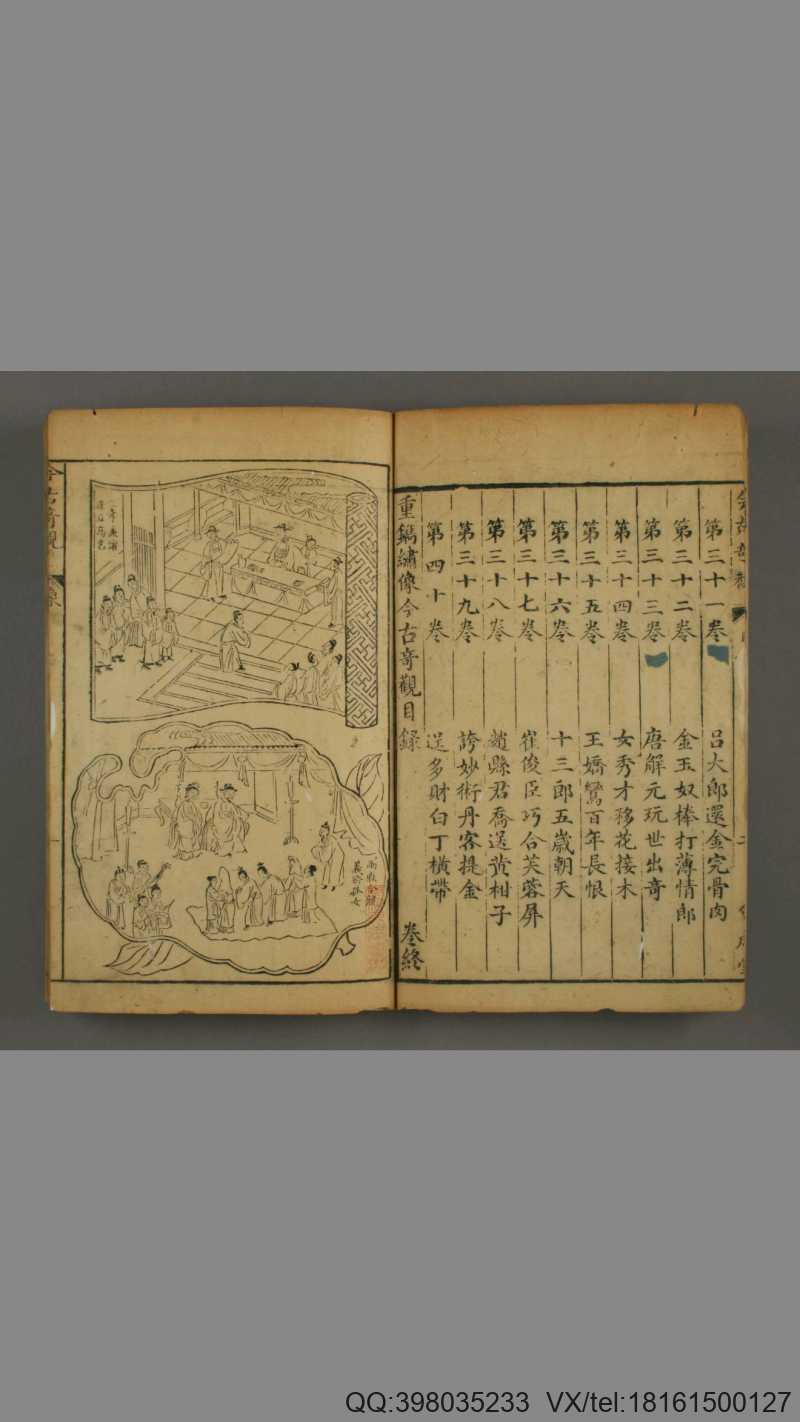 第三十一卷 呂大郎還金完骨肉
第三十二卷 金玉奴棒打薄情郎
第三十三卷 唐解元玩世出奇
第三十四卷 女秀才移花接木
第三十五卷 王嬌鸞百年長恨
第三十六卷 十三郎五歲朝天
第三十七卷 崔俊臣巧合芙蓉屏
第三十八卷 趙縣君喬送黃柑子
第三十九卷 誇妙術丹客提金
第四十卷 逞多財白丁橫帶
重鐫繡像今古奇觀目錄 卷終
今古奇觀
兩縣令競
義婚孤女
QQ:398035233 VX/tel:18161500127